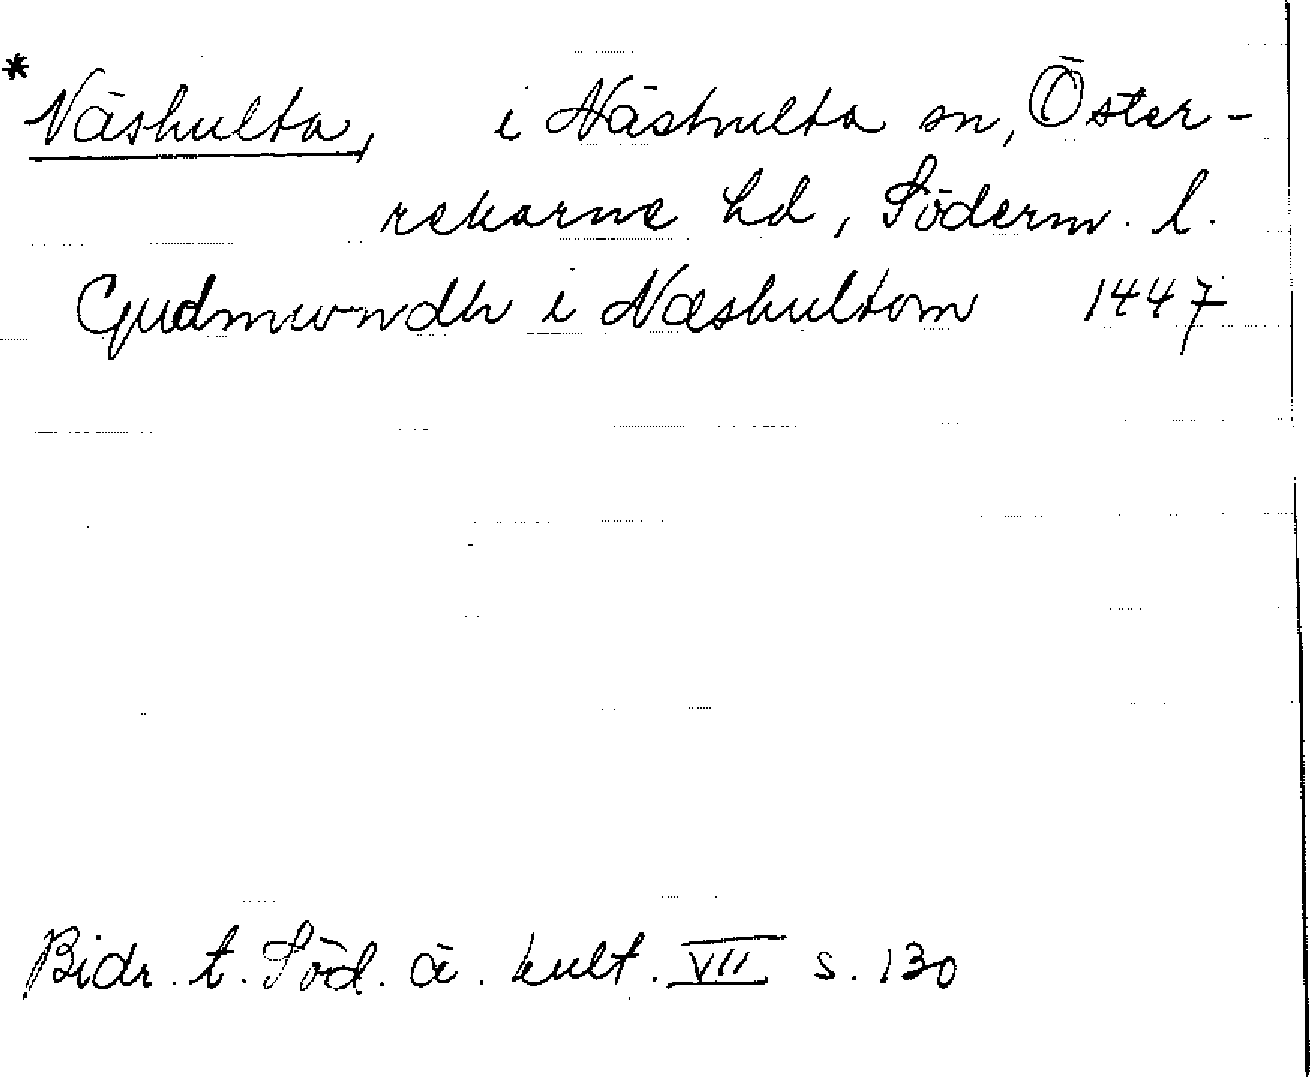 *Näshulta, i Näshulta sn, Öster-
rekarne hd, Söderm. l.
Gudmundh i Næshultom 1447
Bidr. t. Söd. ä. kult. VII s. 130